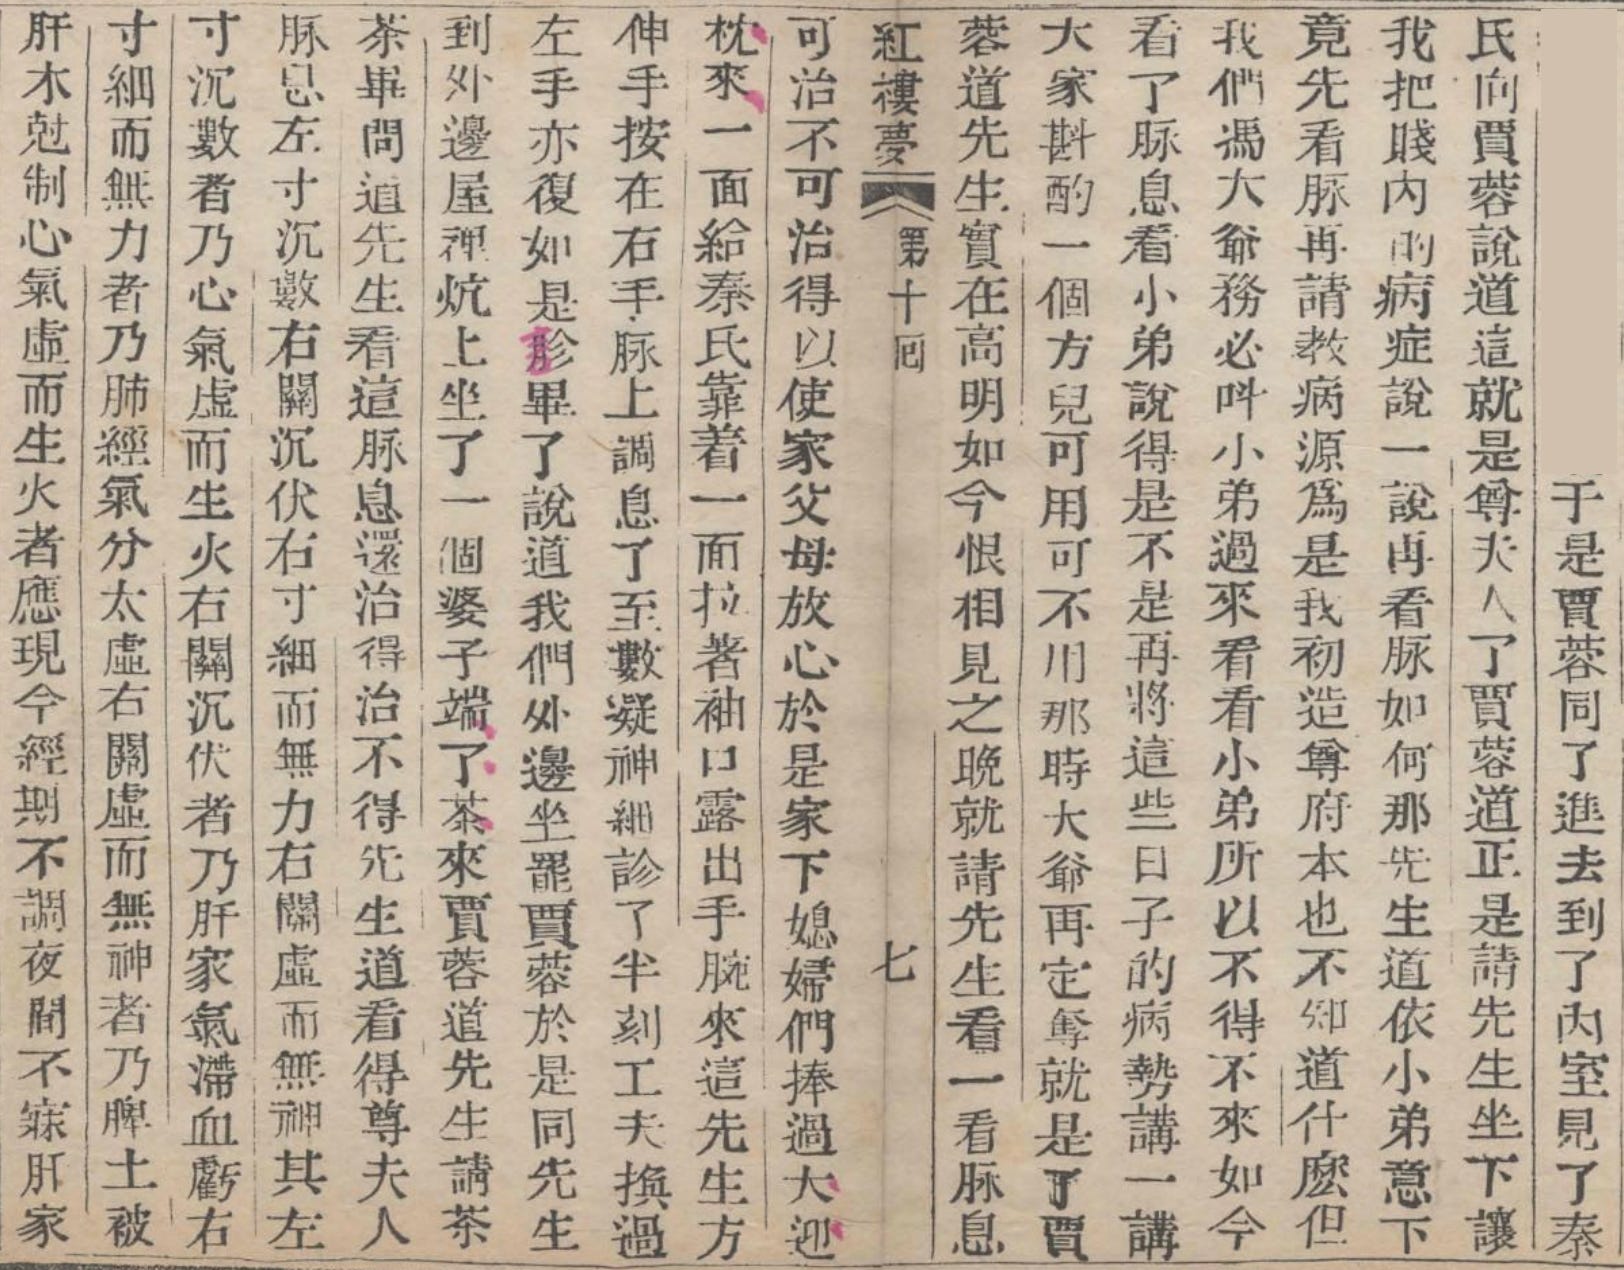 于是賈蓉同了進去到了內室見了秦
氏向賈蓉說道這就是尊夫人了賈蓉道正是請先生坐下讓
我把賤內的病症說一說再看脉如何那先生道依小弟意下
竟先看脉再請教病源爲是我初造尊府本也不知道什麽但
我們馮大爺務必呌小弟過來看看小弟所以不得不來如今
看了脉息看小弟說得是不是再將這些日子的病勢講一講
大家斟酌一個方兒可用可不用那時大爺再定奪就是了賈
蓉道先生實在高明如今恨相見之晩就請先生看一看脉息
紅樓夢 第十囘 七
可治不可治得以使家父母放心於是家下媳婦們捧過大迎
枕來一面給秦氏靠着一面拉著袖口露出手腕來這先生方
伸手按在右手脉上調息了至數凝神細診了半刻工夫換過
左手亦復如是診畢了說道我們外邊坐罷賈蓉於是同先生
到外邊屋裡炕上坐了一個婆子端了茶來賈蓉道先生請茶
茶畢問道先生看這脉息還治得治不得先生道看得尊夫人
脉息左寸沉數右關沉伏右寸細而無力右關虛而無神其左
寸沉數者乃心氣虛而生火右關沉伏者乃肝家氣滯血虧右
寸細而無力者乃肺經氣分太虛右關虛而無神者乃脾土被
肝木尅制心氣虛而生火者應現今經期不調夜間不寐肝家